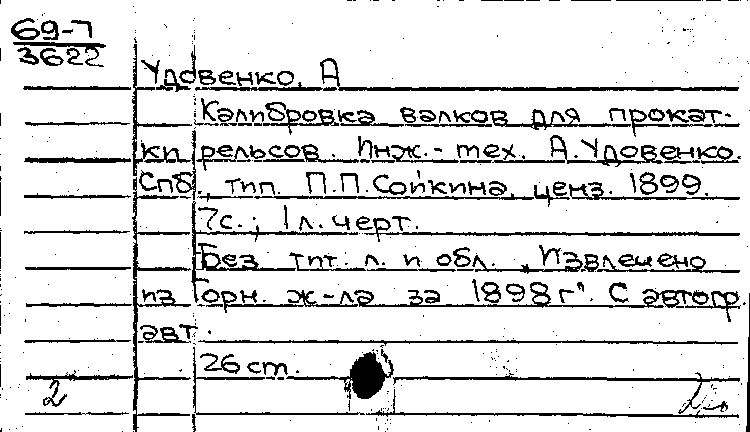 69-7
3622
Удовенко, А
Калибровка валков для прокат-
ки рельсов. Инж.-тех. А. Удовенко.
Спб., тип. П.П. Сойкина, ценз. 1899.
7с.; 1 л. черт.
Без тит. л. и обл. „Извлечено
из Горн. ж-ла за 1898 г". С автогр.
авт.
26 ст.
2